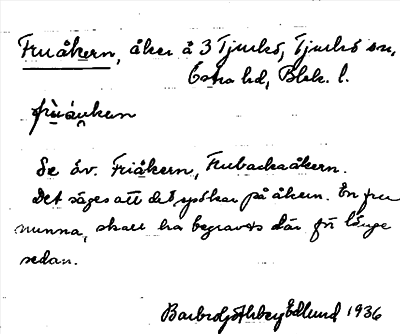 Fruåkern, åker å 3 Tjurkö, Tjurkö sn,
Östra hd, Blek. l.
Se äv. Friåkern, Frubackaåkern.
Det säges att det spökar på åkern. En fru
nunna, skall ha begravts där för länge
sedan.
Edlund 1936